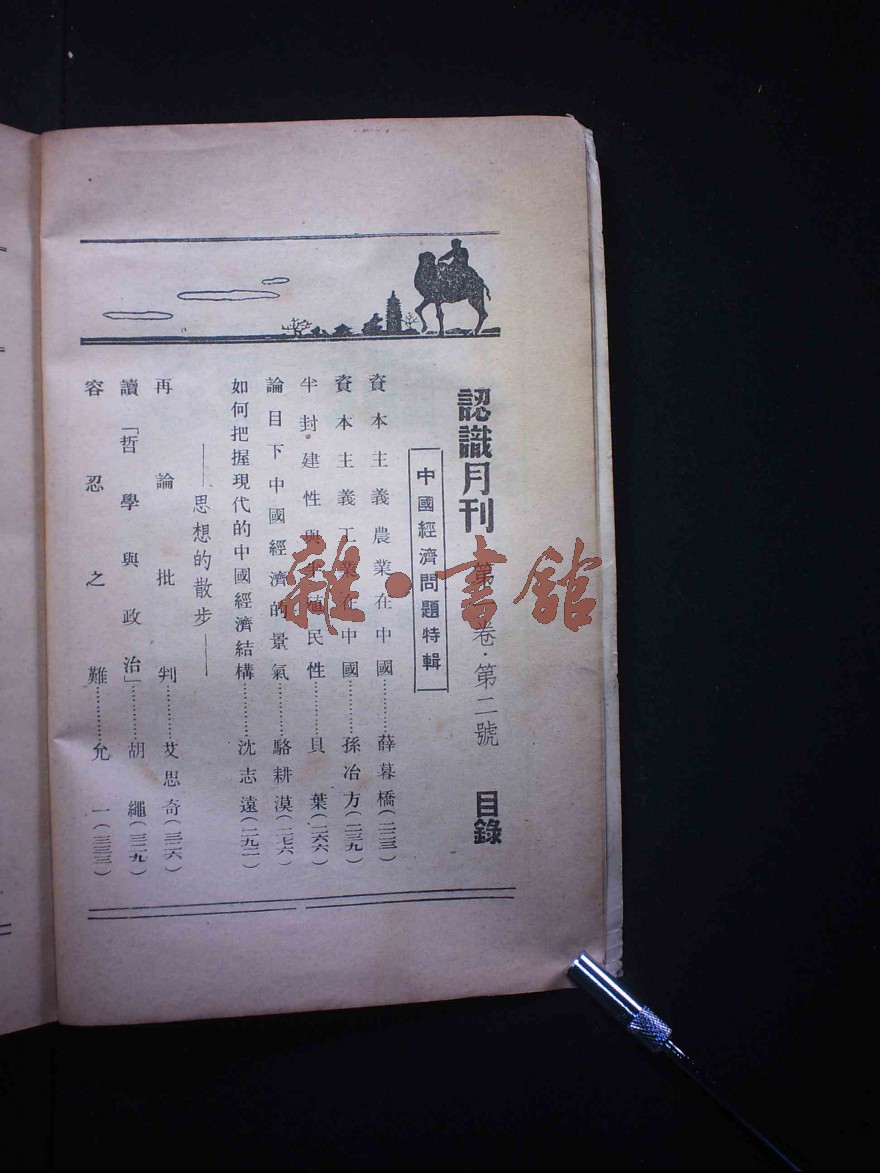 認識月刊 第 卷·第二號 目錄
中國經濟問題特輯
資本主義農業在中國…………薛暮橋(二二三)
資本主義工業在中國…………孫冶方(二三九)
半封建性與半殖民性…………貝葉(二六六)
論目下中國經濟的景氣…………駱耕漠(二七六)
如何把握現代的中國經濟結構…………沈志遠(二九二)
——思想的散步——
再論批判…………艾思奇(三二六)
讀「哲學與政治」…………胡繩(三二九)
容忍之難…………允一(三三三)
雜·書館